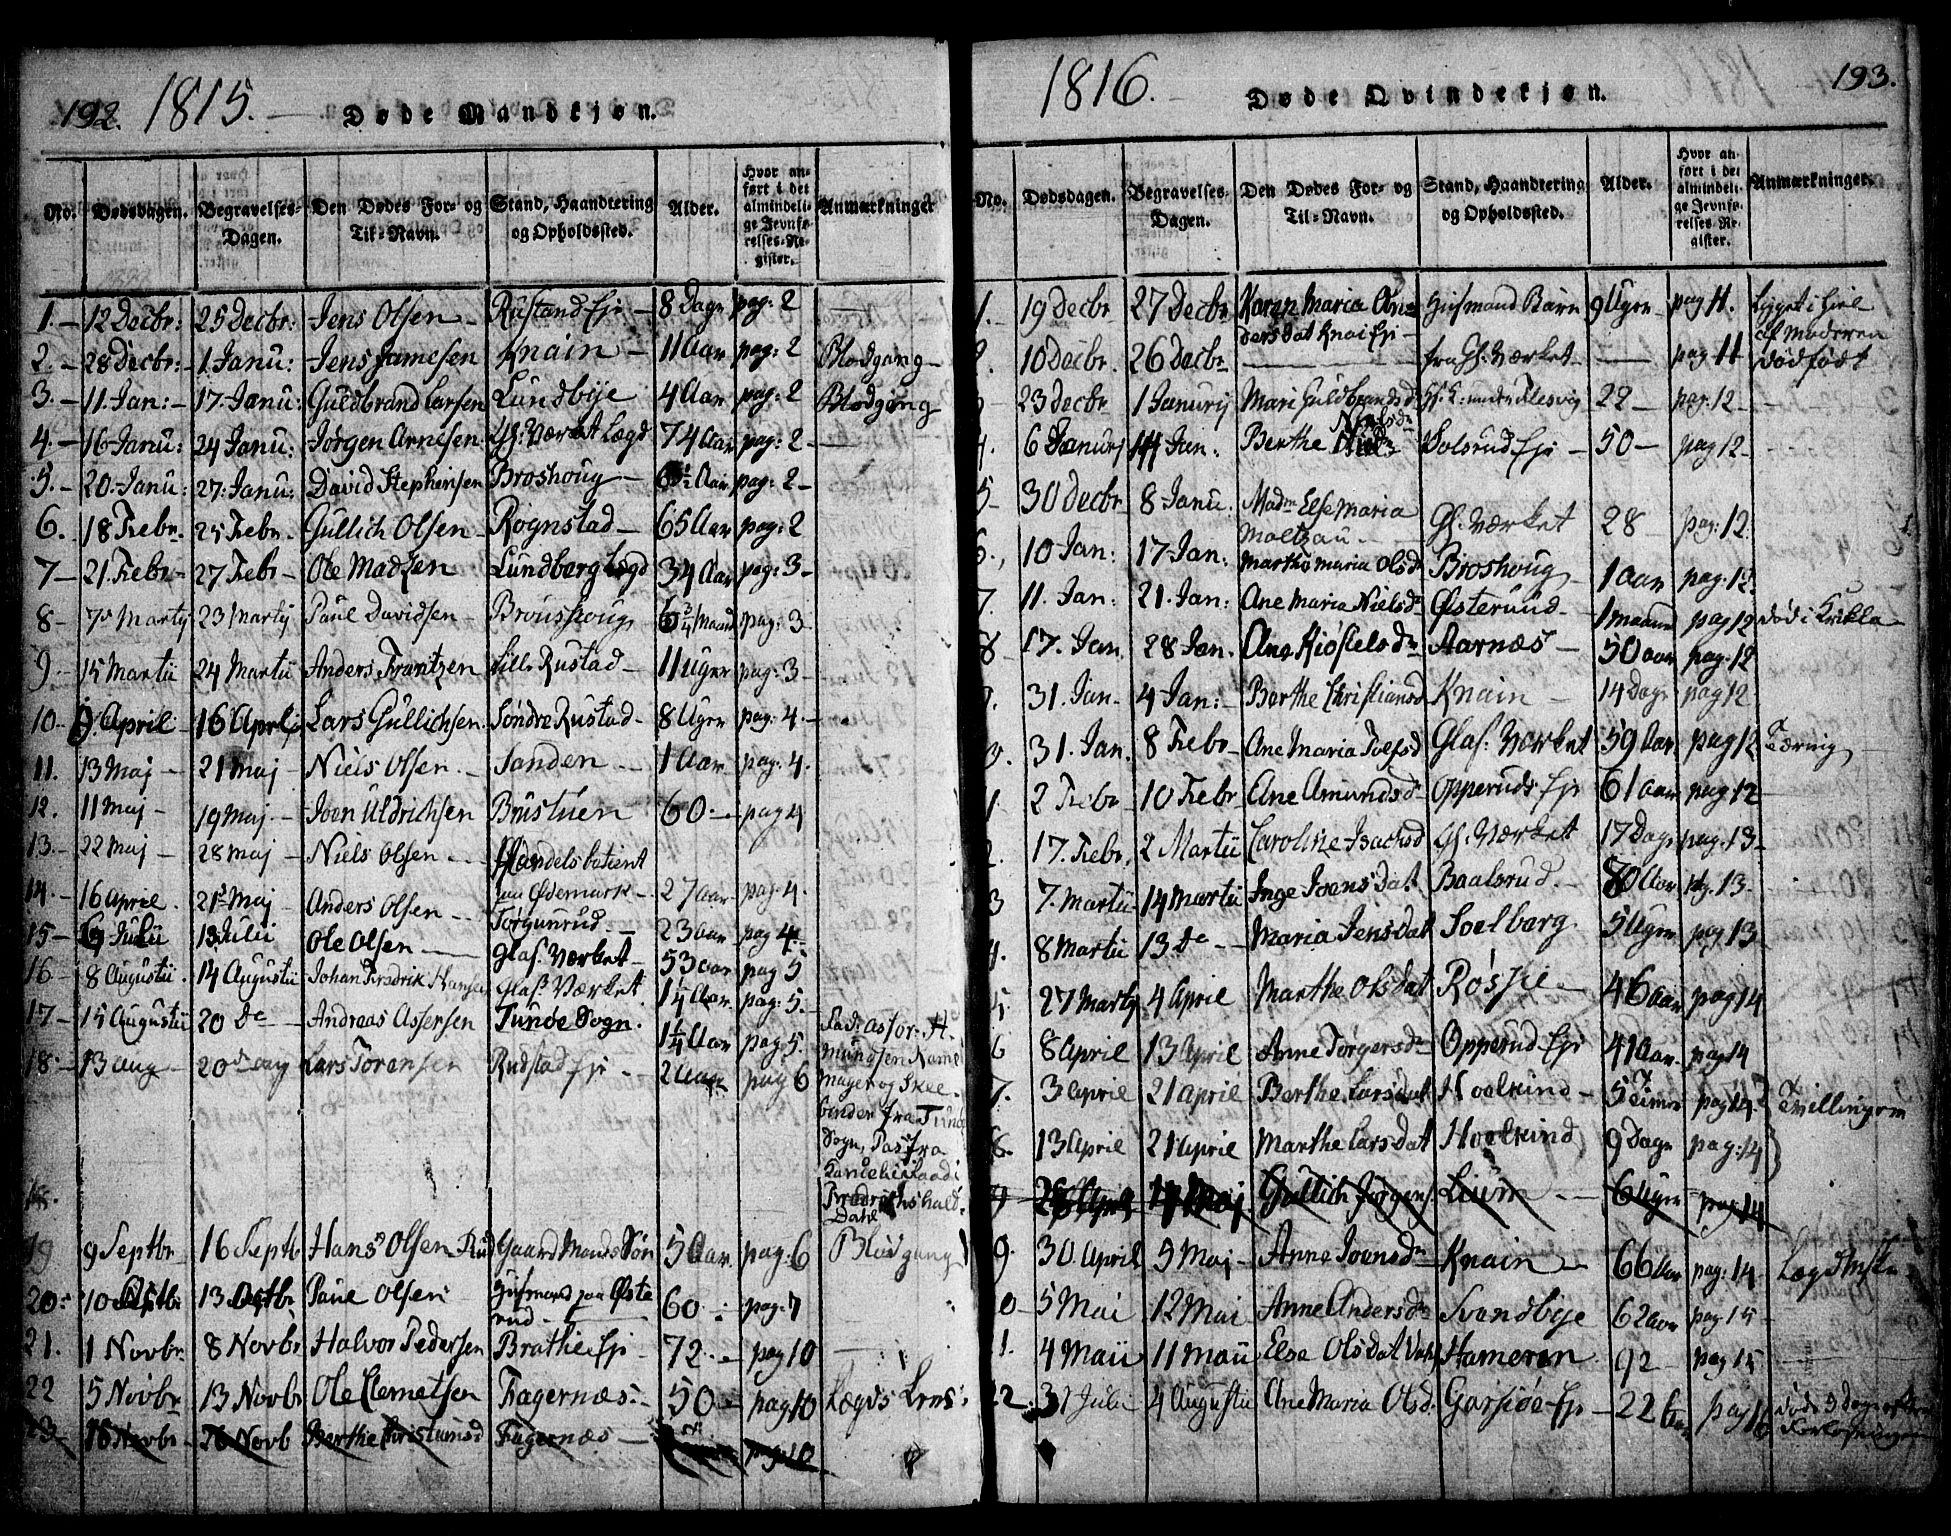 192. 1815.
Døde Mandkjøn.
No. Dødsdagen. Begravelses-Dagen. Den Dødes For- og Til-Navn. Stand, Haandtering og Opholdssted. Alder. Hvor anført i det almindelige Jevnførelses-Register. Anmærkninger
1. 12 Decbr: 25 Decbr: Jens Olsen Rustand Eji 8 Dage pag: 2
2. 28 Decbr: 1 Janu: Jens Jamesen Knain 11 Aar pag: 2 Blodgang
3. 11. Jan: 17. Janu: Guldbrand Larsen Lundbye 4 Aar pag: 2 Blodgang
4. 16 Janu: 24 Janu: Jørgen Arnesen Gl: Værket Lægd 74 Aar pag: 2
5. 20. Janu: 27. Janu: David Stephensen Broshoug pag: 2
6. 18 Febr. 25 Febr. Gullich Olsen Rognstad 65 Aar pag: 2
7 21. Febr 27 Febr Ole Madsen Lundberg Lægd 34 Aar pag: 3
8 7de Martij 23 Martij Paul Davidsen Broushoug Maand pag: 3
9 15 Martii 24 Martii Anders Frantzen Lille Rustad 11 Uger pag: 3
10 9. April 16 April Lars Gullichsen Søndre Rustad 8 Uger pag: 4
11. 13 Maj 21 Maj Niels Olsen Sanden 1 Aar pag: 4.
12. 11 Maj 19 Maj Joen Uldrichsen Brustuen 60 pag 4
13. 22 Maj 28 Maj Niels Olsen Handelsbetient
paa Ødemark 27 Aar pag. 4.
14. 16 April. 21 Maj Anders Olsen Torgunrud 23 Aar pag 4
15 Julii 13 Julii Ole Olsen Glas. Værket 53 Aar pag 5
16 8 Augustii 14 Augustii Johan Fredrik Hansen Glas Værket 1¼ Aar pag: 5.
17 15 Augustii 20 De Andreas Assersen Tunøe Sogn. 1¼ Aar pag 5.
18 13 Aug 20de Aug Lars Torensen Rudstad Eji 2 Aar pag 6
mager og Skee
binder fra Tunøe
Sogn, Pas fra
Fredrikshald
Dahl
19 9 Septbr 16 Septbr Hans Olsen Rud Gaard Mands Søn 5 Aar pag: 6 Blodgang
20 10 13 Paul Olsen Husmand paa Øste
rud 60 pag: 7
21. 1 Novbr 8 Novbr Halvor Pedersen Brathe Eji 72 pag 10
22 5 Novbr 13 Novbr Ole Clemetsen Fagernæs 50 pag 10 Lægds Lem
23 Novbr 26 Novb Berthe Christiansd Fagernæs pag: 10
1816. 193.
Døde Qvindekjøn.
No. Dødsdagen. Begravelses-Dagen. Den Dødes For- og Til-Navn. Stand, Haandtering og Opholdssted. Alder. Hvor anført i det almindelige Jevnførelses-Register. Anmærkninger.
1. 19 Decbr 27 Decbr Karen Maria An
dersdat Knai Eji Husmand Barn 9 Uger pag 11. Ligget i hiel
af Moderen
2. 10 Decbr. 26 Decbr fra Gl: Værket pag 11 dødfødt
23 Decbr 1 Janurij Mari Guldbrandsd 22 pag: 12
4. 6 Janurij Jan. Berthe Nielsd Solsrud Eji 50 pag 12
5 30 Decbr 8 Janu. Mad. Else Maria
Moltzau Gl. Værket 28 pag: 12
6. 10 Jan: 17. Jan: Marthe Maria Olsd Broshoug 1 Aar pag: 12
7. 11. Jan: 21. Jan: Ane Maria Nielsd Østerund 1 Maaned pag 12 død i Krikla
8 17. Jan. 28 Jan. Ane Kiøstelsd Aarnæs 50 Aar pag: 12
9. 31. Jan 4 Jan: Berthe Christiansd Knain 14 Dage pag 12
31. Jan. 8 Febr Ane Maria Toefsd Glas: Værket 59 Aar pag 12 Tæring
1 2 Febr 10 Febr Ane Amundsd Opperuds Eji 61 Aar pag 12
2. 17. Febr. 2 Martii Caroline Isachsd Gl. Værket 17 Dage pag: 13
3 7. Martii 14 Martii Inge Joensdat Baalsrud 80 Aar pag. 13.
4. 8 Martii 13 De Maria Jensdat Soelberg 5 Uger pag: 13
5 27 Martij 4 April Marthe Olsdat Røssie 46 Aar pag 14
6 8 April 13 April Anne Torgersd Opperud Eji 41 Aar pag 14
7. 3 April 21 April Berthe Larsdat Hoelkind 5 Timer pag 14 Tvillinger
8. 13 April 21 April Marthe Larsdat Hoelkind 9 Dage pag: 14
9 26 April Maj Gullich Jørgens. Lium 6 Uger pag 14
9. 30. April 5 Maj Anne Joensd Knain 66 Aar pag: 14 Lægd
0 5 Mai 12 Mai Anne Andersd Svendbye 62 Aar pag 15
1. 4 Maii 11 Maii Else Olsdat Hameren 92 pag 15
2. 31 Juli 4 Augustii Ane Maria Olsd. Garsiøe Eji 22 Aar pag 16 døde 3 Dage efter
Forløsningen